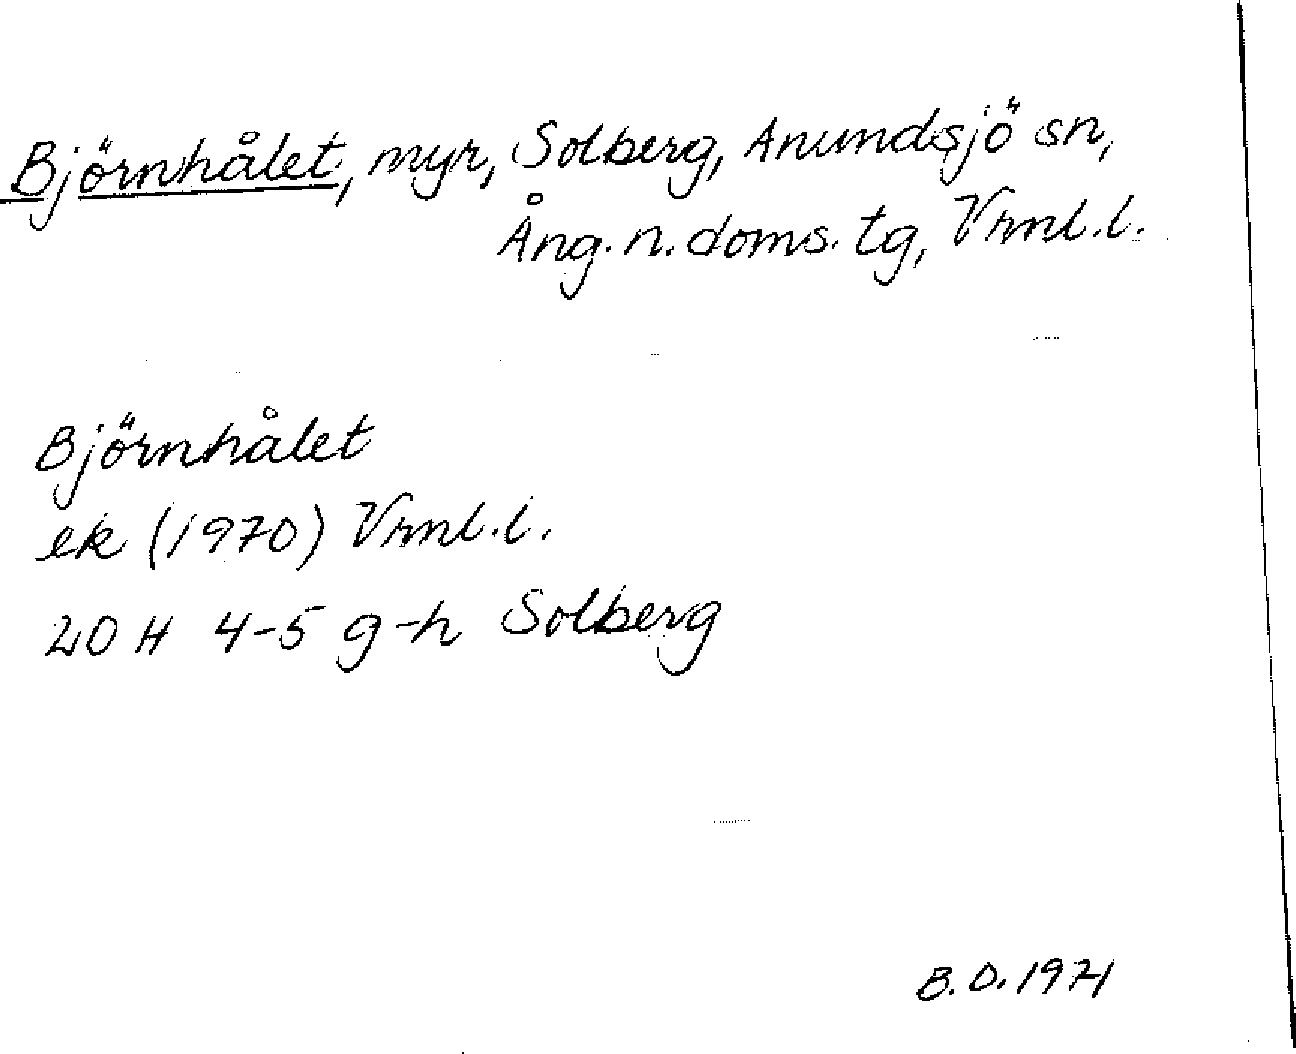 Björnhålet, myr, Solberg, Anundsjö sn,
Ång. n. doms. tg, Vrnl.l.
Björnhålet
ek (1970) Vrnl.l.
20 H 4-5 g-h Solberg
B.O. 1971